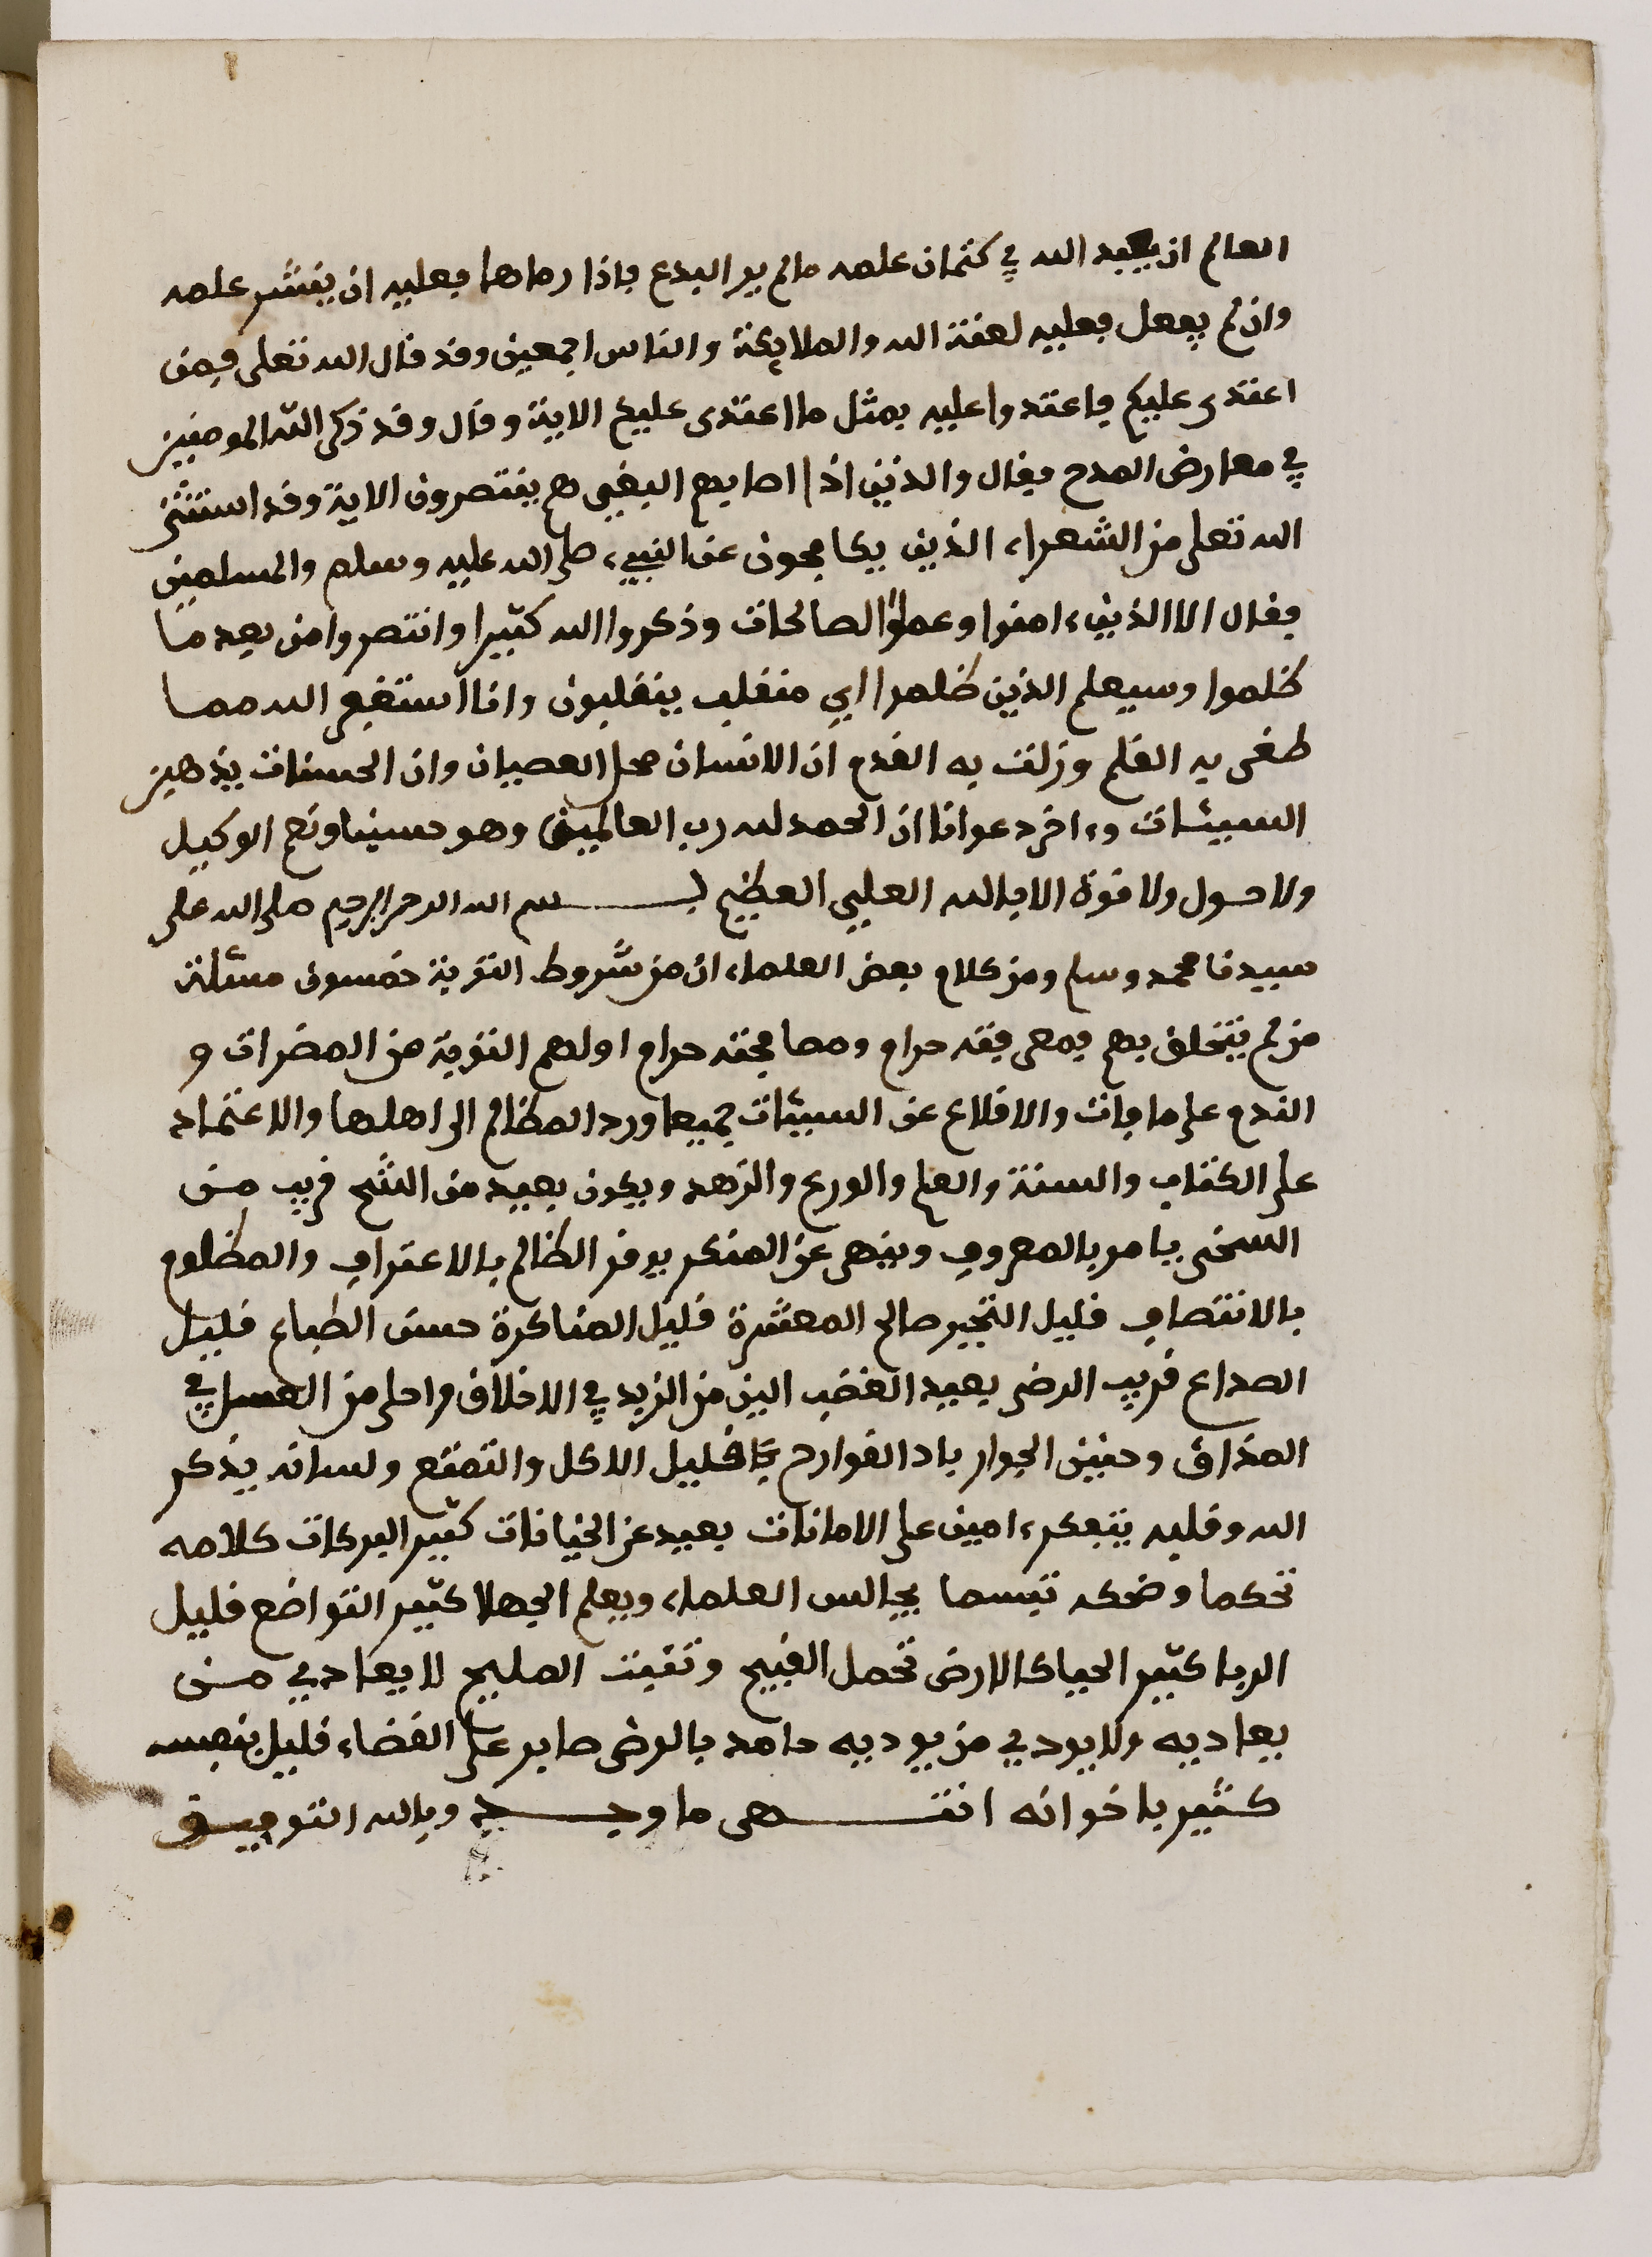 العالم ان يعبد الله في كتمان علمه ما لم ير البدع فاذا رءاها فعليه ان ينشر علمه
وان لم يفعل فعليه لعنة الله والملايكة والناس اجمعين وقد قال الله تعلى فمن
اعتدى عليكم فاعتدوا عليه بمثل ما اعتدى عليكم الاية وقال وقد ذكر الله المومنين
في معارض المدح فقال والذين اذا اصابهم البغي هم ينتصرون الاية وقد استثنى
الله تعلى من الشعراء الذين يكافحون عن النبيء صلى الله عليه وسلم والمسلمين
فقال الا الذين ءامنوا وعملوا الصالحات وذكروا الله كثيرا وانتصروا من بعد ما
ظلموا وسيعلم الذين ظلموا اي منقلب ينقلبون وانا استغفر الله مما
طغى به القلم وزلت به القدم ان الانسان محل العصيان وان الحسنات يذهبن
السيئات وءاخر دعوانا ان الحمد لله رب العالمين وهو حسبنا ونعم الوكيل
ولا حول ولا قوة الا بالله العلي العظيم بسم الله الرحمن الرحيم صلى الله على
سيدنا محمد وسلم ومن كلام بعض العلماء ان من شروط التوبة خمسون مسئلة
من لم يتخلق بهم فمعرفته حرام ومصافحته حرام اولهم التوبة من المضرات و
الندم على ما فات والاقلاع عن السيئات جميعا ورد المظالم الى اهلها والاعتماد
على الكتاب والسنة والعلم والورع والزهد ويكون بعيد من الشح قريب من
السخى يامر بالمعروف وينهى عن المنكر يوفر الظالم بالاعتراف والمظلوم
بالانتصاف قليل التجبر صالح المعشرة قليل المناكرة حسن الطباع قليل
الصداع قريب الرضى بعيد الغضب الين من الزبد في الاخلاق واحلى من العسل في
المذاق وحنين الجوار باد القوارح قليل الاكل والتمتع ولسانه بذكر
الله وقلبه يتفكر امين على الامانات بعيد عن الخيانات كثير البركات كلامه
تحكما وضحكه تبسما يجالس العلماء ويعلم الجهلا كثير التواضع قليل
الريا كثير الحيا كالارض تحمل القبيح وتنبت المليح لا يعادي من
يعاديه ولا يودي من يوديه حامد بالرضى صابر على القضاء قليل بنفسه
كثير باخوانه انتهى ما وجد وبالله التوفيق